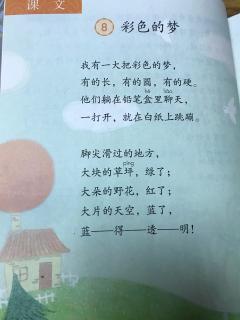 课 文
8 彩色的梦
我有一大把彩色的梦，
有的长，有的圆，有的硬。
hé liáo
他们躺在铅笔盒里聊天，
一打开，就在白纸上跳蹦。
脚尖滑过的地方，
píng
大块的草坪，绿了；
大朵的野花，红了；
大片的天空，蓝了，
蓝——得——透——明！